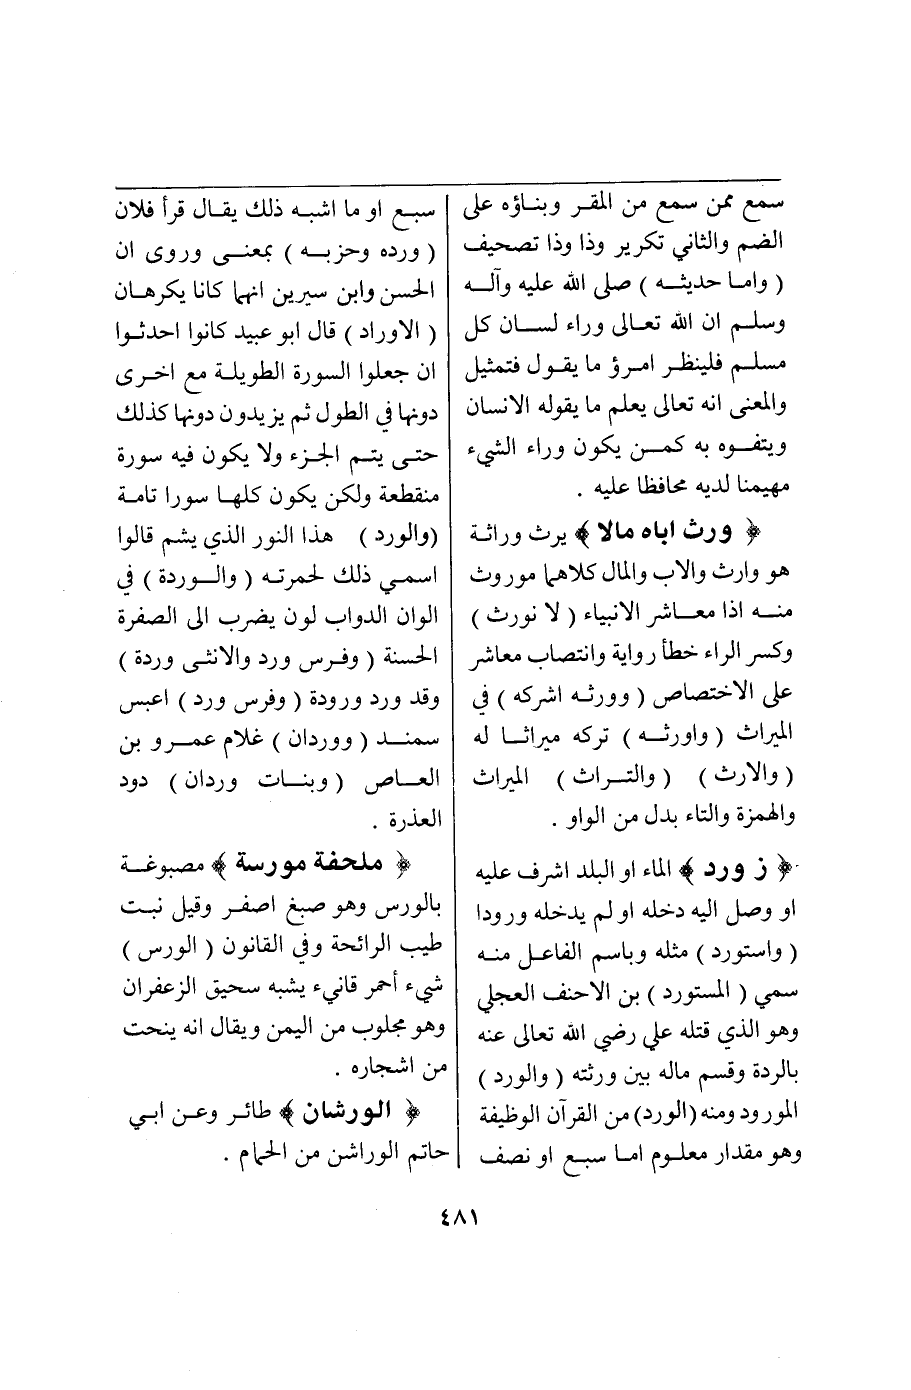 سمع ممن سمع من المقر وبناؤه على
الضم والثاني تكرير وذا وذا تصحيف
( واما حديثه ) صلى الله عليه وآله
وسلم ان الله تعالى وراء لسان كل
مسلم فلينظر امرؤ ما يقول فتمثيل
والمعنى انه تعالى يعلم ما يقوله الانسان
ويتفوه به كمن يكون وراء الشيء
مهيمنا لديه محافظا عليه .
﴿ ورث اباه مالا ﴾ يرث وراثة
هو وارث والاب والمال كلاهما موروث
منه اذا معاشر الانبياء ( لا نورث )
وكسر الراء خطأ رواية وانتصاب معاشر
على الاختصاص ( وورثه اشركه ) في
الميراث ( واورثه ) تركه ميراثا له
( والارث ) ( والتراث ) الميراث
والهمزة والتاء بدل من الواو .
﴿ ز ورد ﴾ الماء او البلد اشرف عليه
او وصل اليه دخله او لم يدخله ورودا
( واستورد ) مثله وباسم الفاعل منه
سمي ( المستورد ) بن الاحنف العجلي
وهو الذي قتله علي رضي الله تعالى عنه
بالردة وقسم ماله بين ورثته ( والورد )
المورود ومنه (الورد) من القرآن الوظيفة
وهو مقدار معلوم اما سبع او نصف
سبع او ما اشبه ذلك يقال قرأ فلان
( ورده وحزبه ) بمعنى وروى ان
الحسن وابن سيرين انهما كانا يكرهان
( الاوراد ) قال ابو عبيد كانوا احدثوا
ان جعلوا السورة الطويلة مع اخرى
دونها في الطول ثم يزيدون دونها كذلك
حتى يتم الجزء ولا يكون فيه سورة
منقطعة ولكن يكون كلها سورا تامة
(والورد ) هذا النور الذي يشم قالوا
اسمي ذلك لحمرته ( والوردة ) في
الوان الدواب لون يضرب الى الصفرة
الحسنة ( وفرس ورد والانثى وردة )
وقد ورد ورودة ( وفرس ورد ) اعبس
سمند ( ووردان ) غلام عمرو بن
العاص ( وبنات وردان ) دود
العذرة .
﴿ ملحفة مورسة ﴾ مصبوغة
بالورس وهو صبغ اصفر وقيل نبت
طيب الرائحة وفي القانون ( الورس )
شيء أحمر قانيء يشبه سحيق الزعفران
وهو مجلوب من اليمن ويقال انه ينحت
من اشجاره .
﴿ الورشان ﴾ طائر وعن ابي
حاتم الوراشن من الحمام .
٤٨١